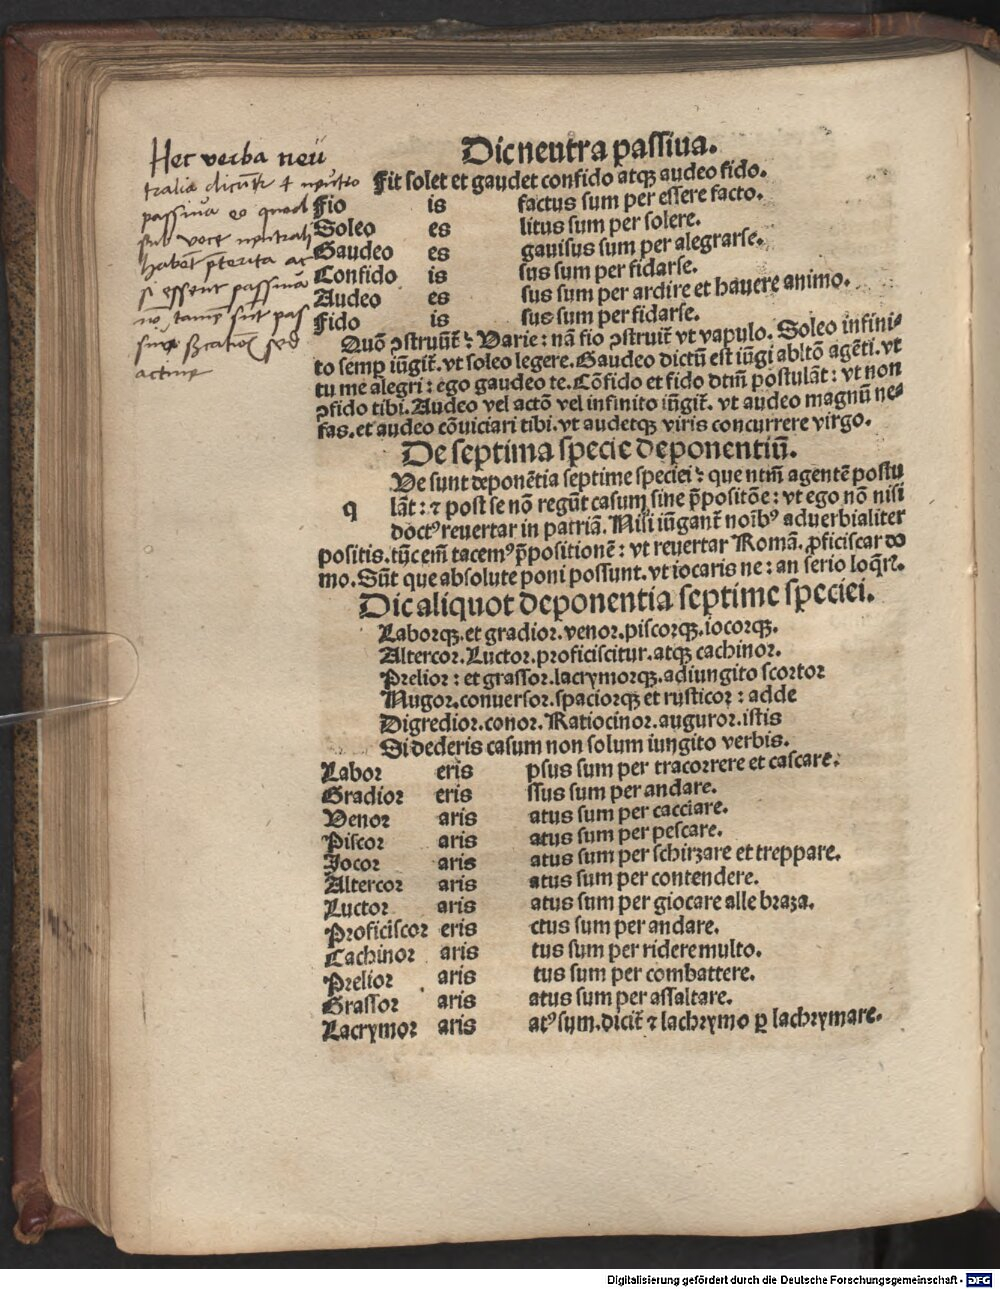 Her verba neu
tralia dicūtr
passiva eo quod
sub voce neutrali
habēt p̄terita ac
si essent passiva
actiue
Dic neutra passiua.
Fit solet et gaudet confido atqꝫ audeo fido.
Fio is factus sum per essere facto.
Soleo es litus sum per solere.
Gaudeo es gauisus sum per alegrarse.
Confido is sus sum per fidarse.
Audeo es sus sum per ardire et hauere animo.
Fido is sus sum per fidarse.
Quō ꝯstruūt᷑ : Uarie : nā fio ꝯstruit᷑ vt vapulo. Soleo infini-
to semꝑ iūgit᷑. vt soleo legere. Gaudeo dictū est iūgi abltō agēti. vt
tu me alegri : ego gaudeo te. Cōfido et fido dtm̄ postulāt : vt non
ꝯfido tibi. Audeo vel actō vel infinito iūgit᷑. vt audeo magnū ne-
fas. et audeo cōuiciari tibi. vt audetqꝫ viris concurrere virgo.
De septima specie deponentiū.
Ue sunt deponētia septime speciei : que ntm̄ agentē postu
q lāt : ⁊ post se nō regūt casum sine p̄positōe : vt ego nō nisi
doctꝰ reuertar in patriā. Nisi iūgant᷑ noībꝰ aduerbialiter
positis. tūc em̄ tacemꝰ p̄positionē : vt reuertar Romā. ꝓficiscar do
mo. Sūt que absolute poni possunt. vt iocaris ne : an serio loq̄r᷑.
Dic aliquot deponentia septime speciei.
Laborqꝫ. et gradior. venor. piscorqꝫ. iocorqꝫ.
Altercor. Luctor. proficiscitur. atqꝫ cachinor.
Prelior : et grassor. lacrymorqꝫ. adiungito scortor
Nugor. conuersor. spaciorqꝫ et rusticor : adde
Digredior. conor. Ratiocinor. auguror. istis
Si dederis casum non solum iungito verbis.
Labor eris psus sum per tracorrere et cascare.
Gradior eris ssus sum per andare.
Venor aris atus sum per cacciare.
Piscor aris atus sum per pescare.
Jocor aris atus sum per schirzare et treppare.
Altercor aris atus sum per contendere.
Luctor aris atus sum per giocare alle braza.
Proficiscor eris ctus sum per andare.
Cachinor aris tus sum per ridere multo.
Prelior aris tus sum per combattere.
Grassor aris atus sum per assaltare.
Lacrymor aris atꝰ sum. dicit᷑ ⁊ lachrymo ꝑ lachrymare.
Digitalisierung gefördert durch die Deutsche Forschungsgemeinschaft - DFG